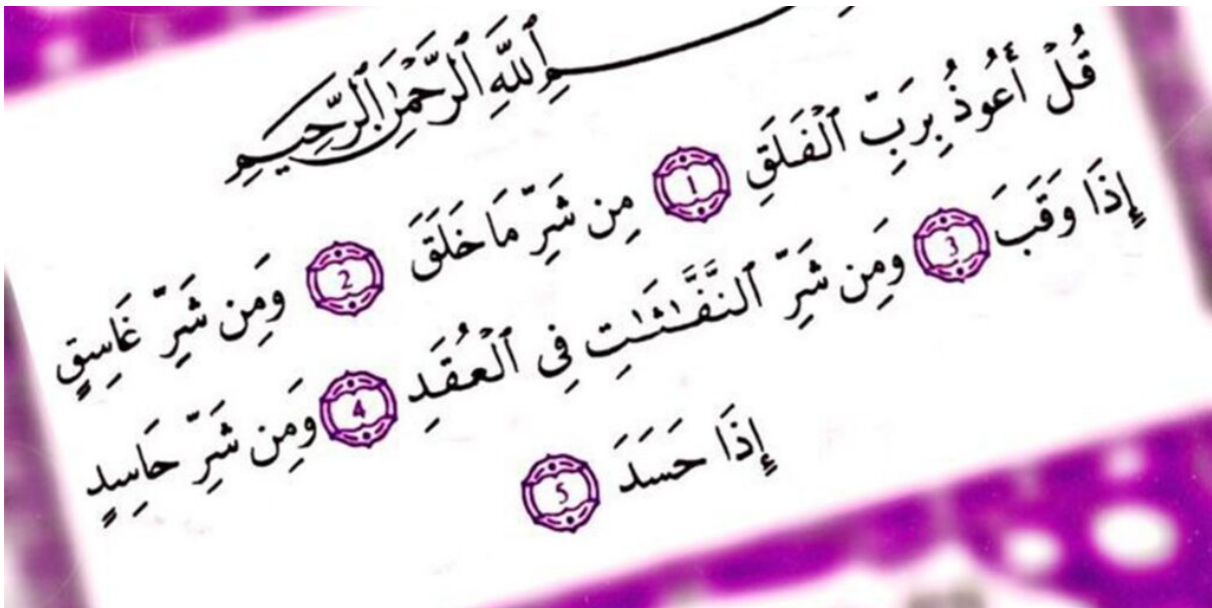 بِسْمِ ٱللَّهِ ٱلرَّحْمَٰنِ ٱلرَّحِيمِ
قُلْ أَعُوذُ بِرَبِّ ٱلْفَلَقِ 1 مِن شَرِّ مَا خَلَقَ 2 وَمِن شَرِّ غَاسِقٍ
إِذَا وَقَبَ 3 وَمِن شَرِّ ٱلنَّفَّٰثَٰتِ فِى ٱلْعُقَدِ 4 وَمِن شَرِّ حَاسِدٍ
إِذَا حَسَدَ 5